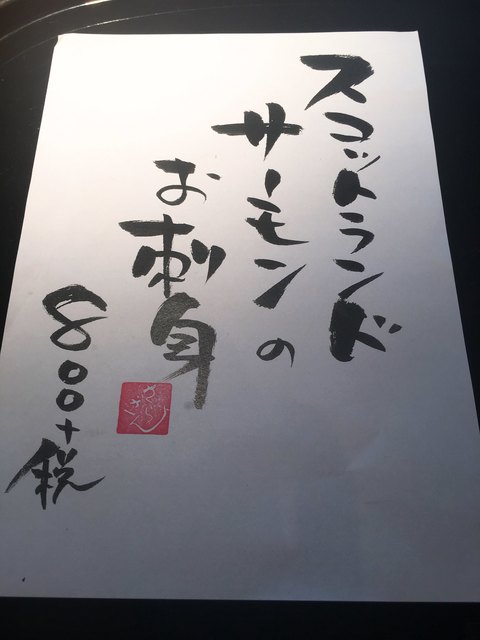 スコットランド
サーモンの
お刺身
800+税